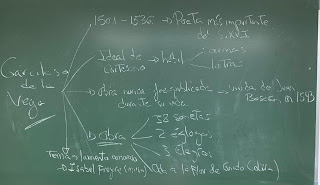 1501-1536 → Poeta más importante
del S.XVI
Garcilaso
de la
Vega
Ideal de
cortesano → hábil
armas
letras
Obra nunca fue publicada
durante su vida → unida de Juan
Boscán, en 1543
obra
38 sonetos
2 églogas
3 elegías
Oda a la flor de Gnido (
Tema → lamento amoroso
→ Isabel Freyre (